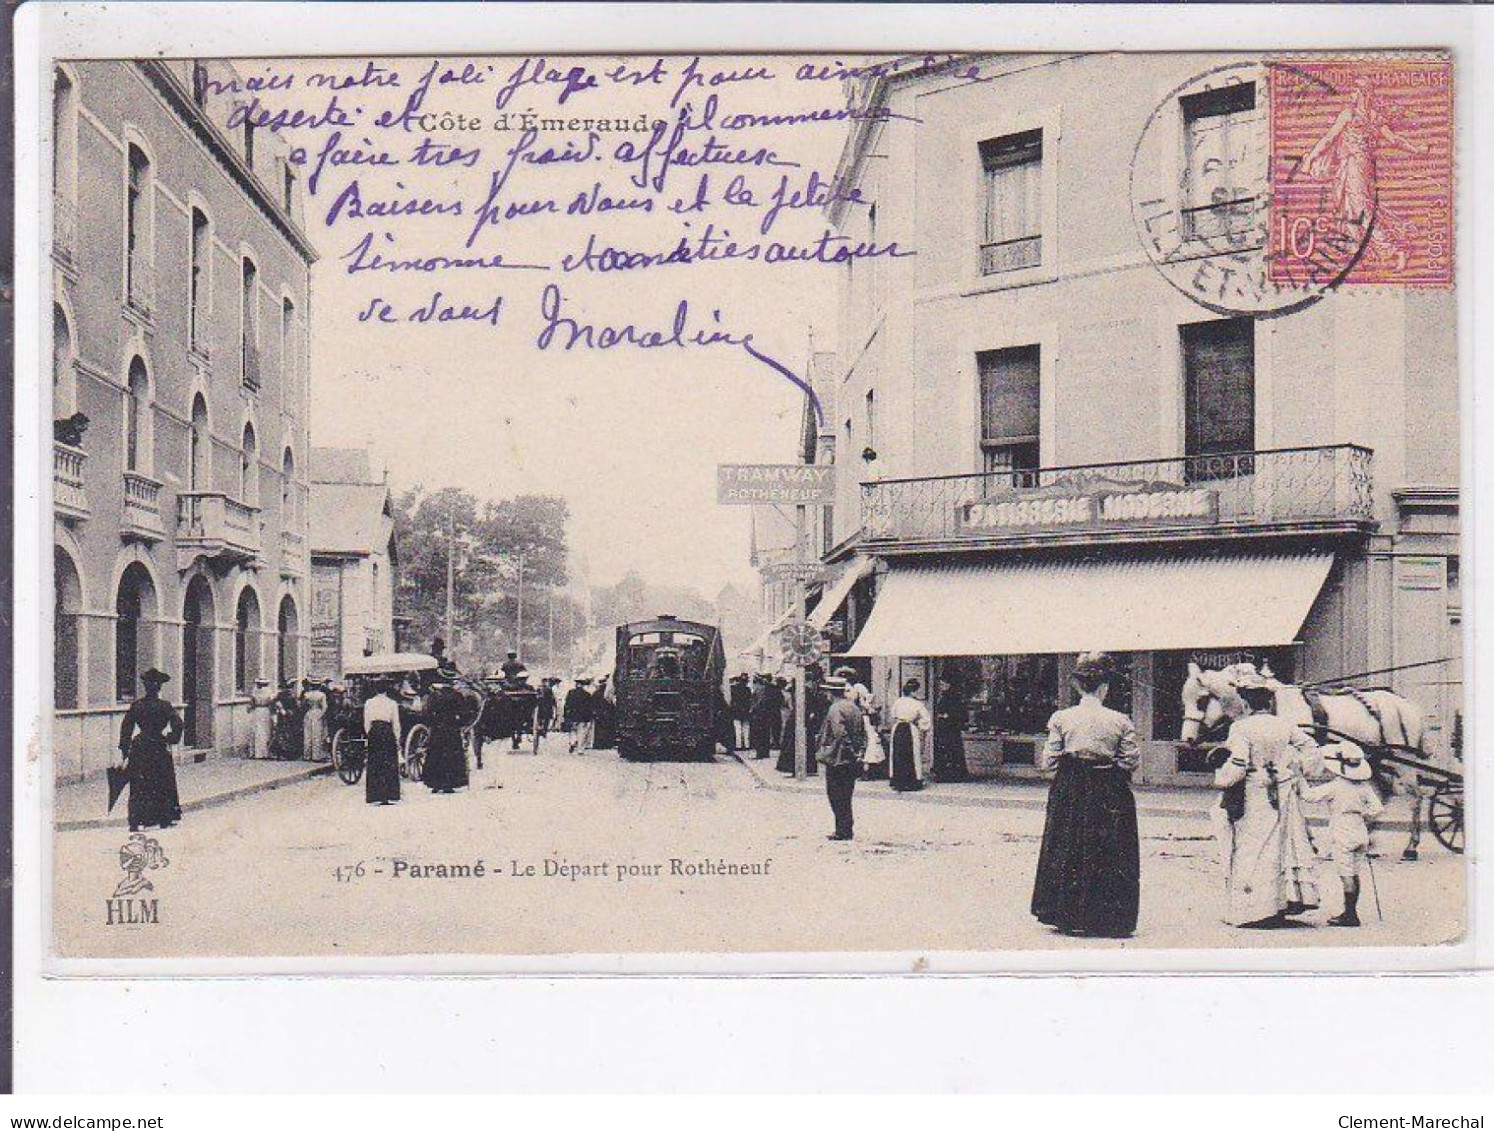 mais notre joli plage est pour ainsi dire
deserté et il commence
Côte d'Émeraude
a faire tres froid. affectueux
Baisers pour vous et la petite
Simonne et amitiés autour
de vous Marceline
RÉPUBLIQUE FRANÇAISE
10c
POSTES
17
ILLE-ET-VILAINE
TRAMWAY
ROTHÉNEUF
PATISSERIE MODERNE
SORBETS
476 - Paramé - Le Départ pour Rothéneuf
HLM
www.delcampe.net
Clement-Marechal